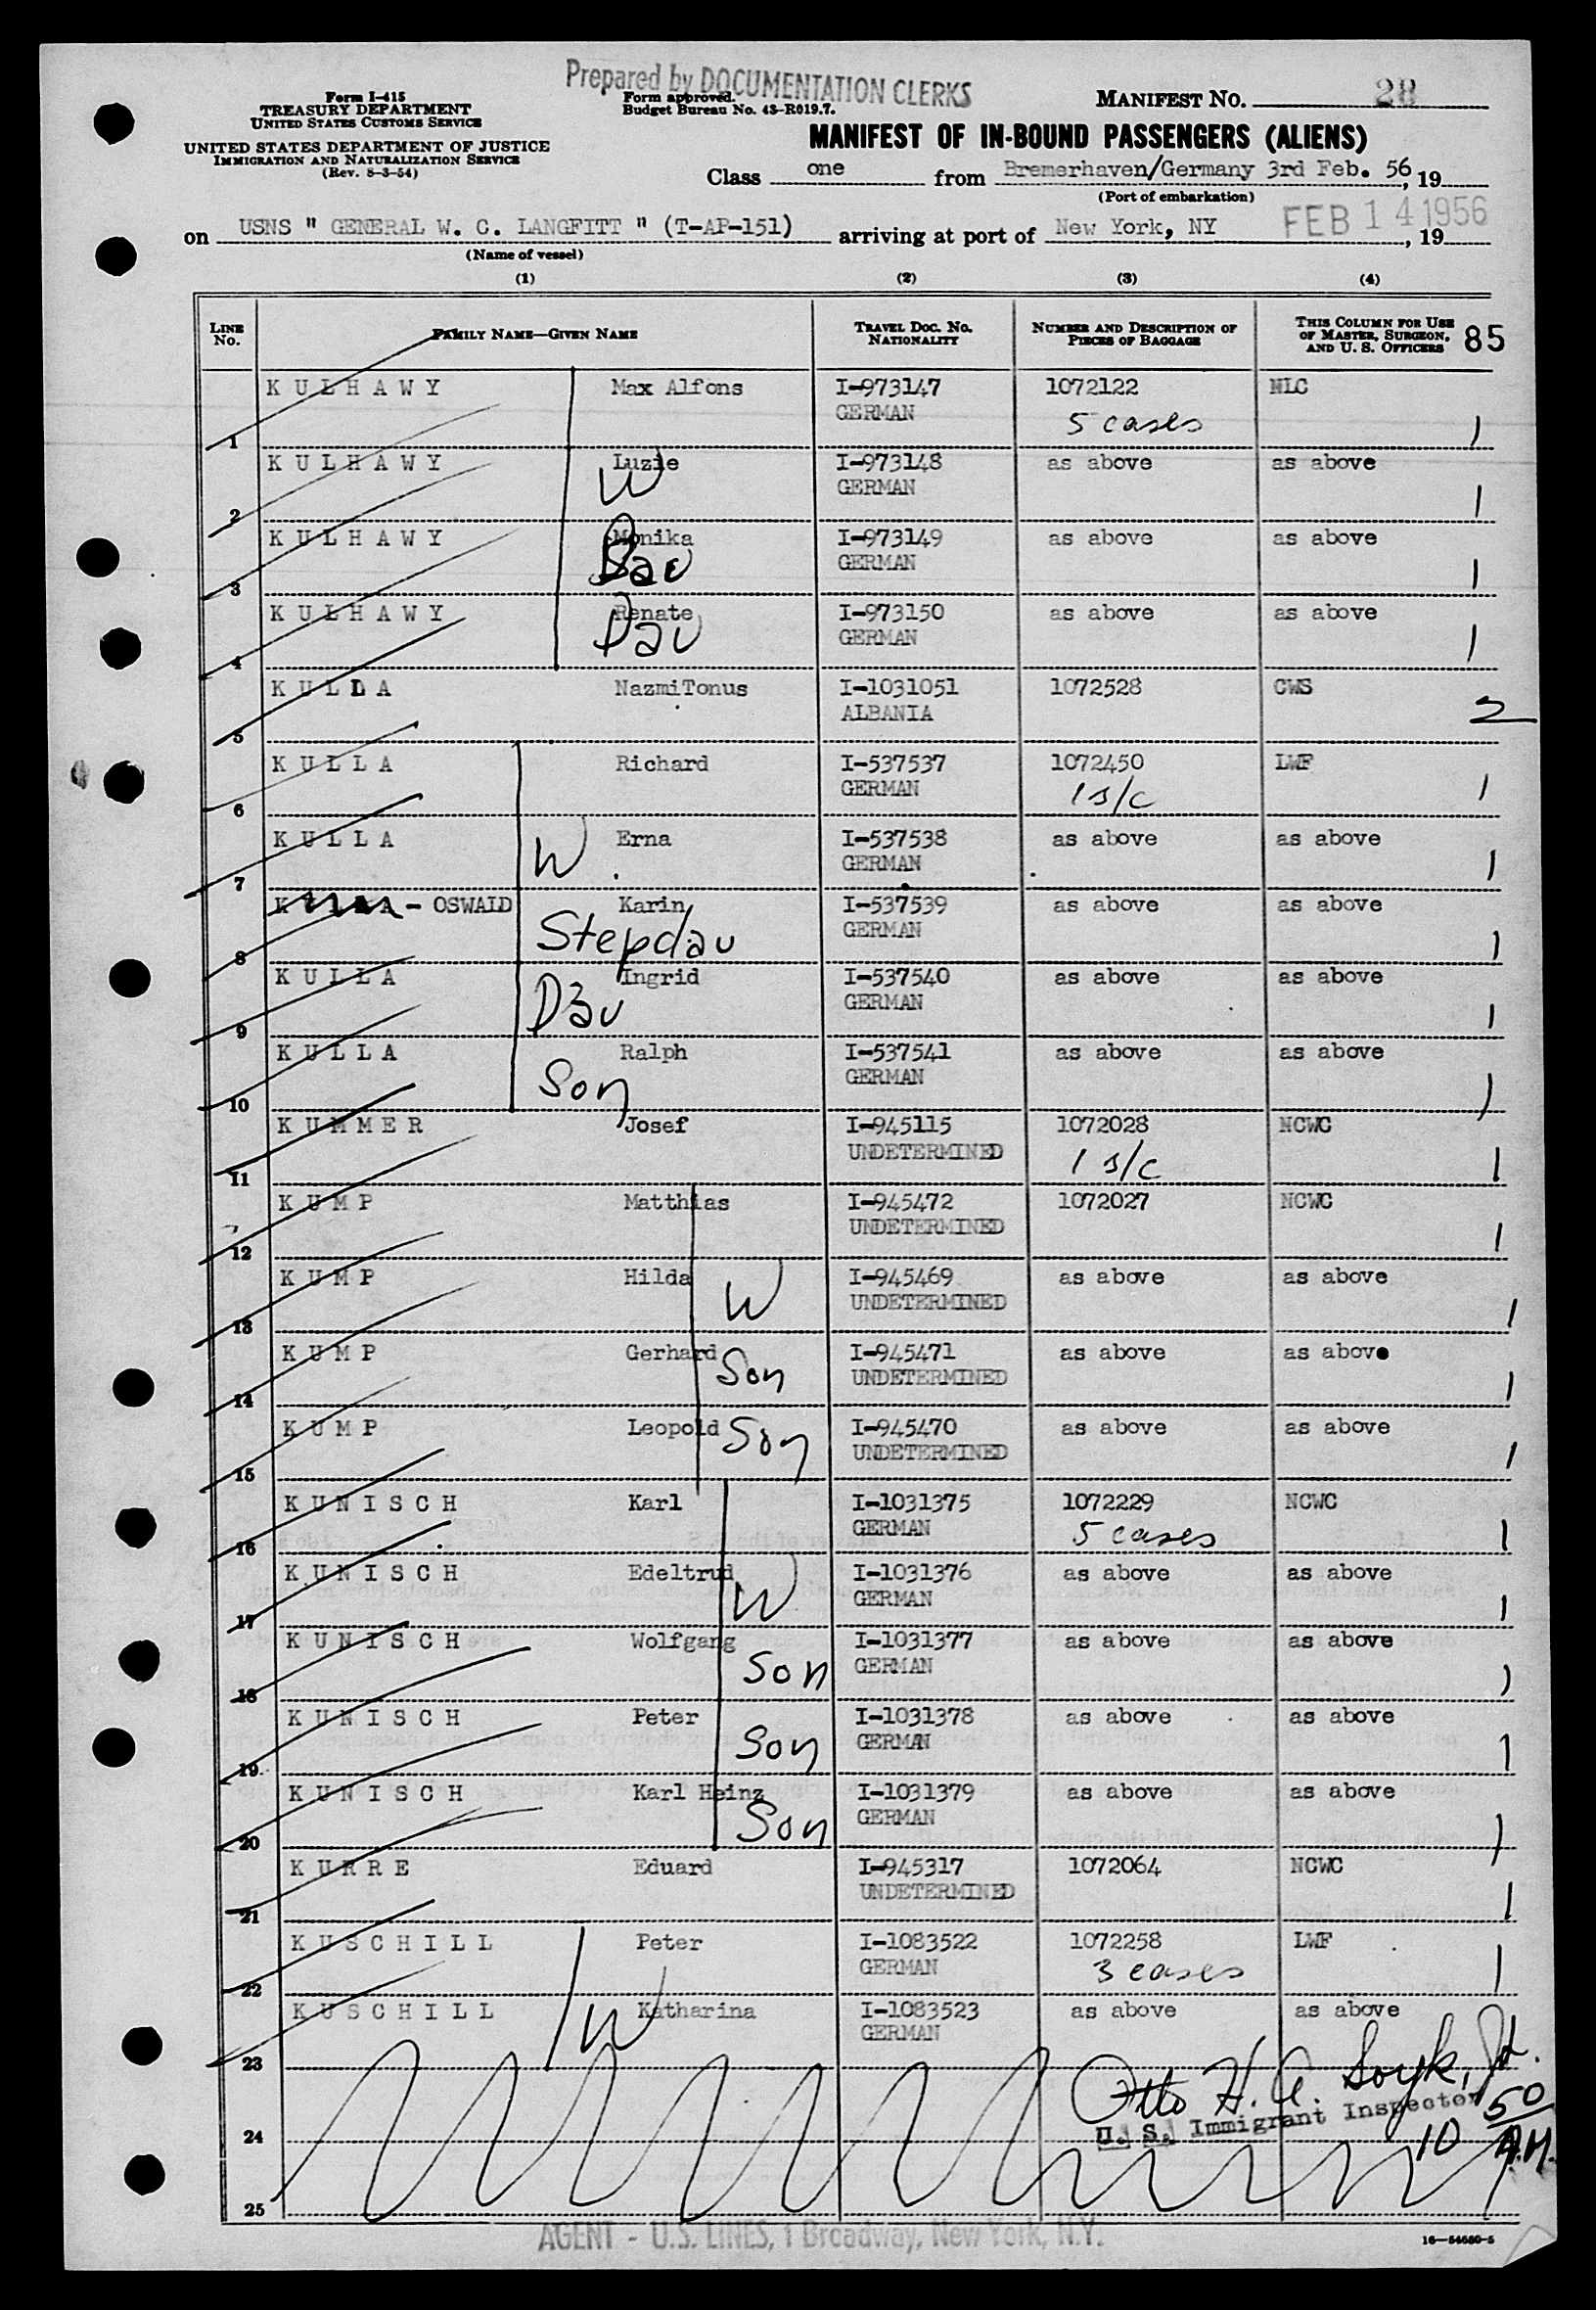 Prepared by DOCUMENTATION CLERKS
Form I-415
TREASURY DEPARTMENT
UNITED STATES CUSTOMS SERVICE
UNITED STATES DEPARTMENT OF JUSTICE
IMMIGRATION AND NATURALIZATION SERVICE
(Rev. 8-3-54)
Form approved.
Budget Bureau No. 43-R019.7.
MANIFEST NO. 28
MANIFEST OF IN-BOUND PASSENGERS (ALIENS)
Class one from Bremerhaven/Germany 3rd Feb. 56, 19
(Port of embarkation)
on USNS " GENERAL W. C. LANGFITT " (T-AP-151) arriving at port of New York, NY FEB 14 1956, 19
(Name of vessel)
(1) (2) (3) (4)
LINE No. FAMILY NAME—GIVEN NAME TRAVEL DOC. NO. NATIONALITY NUMBER AND DESCRIPTION OF PIECES OF BAGGAGE THIS COLUMN FOR USE OF MASTER, SURGEON, AND U. S. OFFICERS 85
K U L H A W Y Max Alfons I-973147 1072122 NLC
1 GERMAN 5 cases 1
K U L H A W Y Luzie I-973148 as above as above
2 W GERMAN 1
K U L H A W Y Monika I-973149 as above as above
3 Dau GERMAN 1
K U L H A W Y Renate I-973150 as above as above
4 Dau GERMAN 1
K U L D A NazmiTonus I-1031051 1072528 CWS
5 ALBANIA 2
K U L L A Richard I-537537 1072450 LWF
6 GERMAN 1 s/c 1
K U L L A Erna I-537538 as above as above
7 W GERMAN 1
K U L L A - OSWALD Karin I-537539 as above as above
8 Stepdau GERMAN 1
K U L L A Ingrid I-537540 as above as above
9 Dau GERMAN 1
K U L L A Ralph I-537541 as above as above
10 Son GERMAN 1
K U M M E R Josef I-945115 1072028 NCWC
11 UNDETERMINED 1 s/c 1
K U M P Matthias I-945472 1072027 NCWC
12 UNDETERMINED 1
K U M P Hilda I-945469 as above as above
13 W UNDETERMINED 1
K U M P Gerhard I-945471 as above as above
14 Son UNDETERMINED 1
K U M P Leopold I-945470 as above as above
15 Son UNDETERMINED 1
K U N I S C H Karl I-1031375 1072229 NCWC
16 GERMAN 5 cases 1
K U N I S C H Edeltrud I-1031376 as above as above
17 W GERMAN 1
K U N I S C H Wolfgang I-1031377 as above as above
18 Son GERMAN 1
K U N I S C H Peter I-1031378 as above as above
19 Son GERMAN 1
K U N I S C H Karl Heinz I-1031379 as above as above
20 Son GERMAN 1
K U R R E Eduard I-945317 1072064 NCWC
21 UNDETERMINED 1
K U S C H I L L Peter I-1083522 1072258 LWF
22 GERMAN 3 cases 1
K U S C H I L L Katharina I-1083523 as above as above
23 W GERMAN
Otto H. A. Soyk, Jr.
U. S. Immigrant Inspector
24 10 50 A.M.
25
AGENT - U.S. LINES, 1 Broadway, New York, N.Y.
16—54680-5